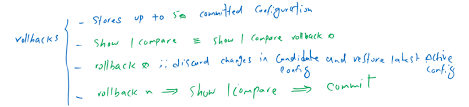 rollbacks
- Stores up to 50 committed configuration
- Show | compare ≡ show | compare rollback 0
- rollback 0 :: discard changes in Candidate config and restore latest Active config
- rollback n ⇒ Show | compare ⇒ commit